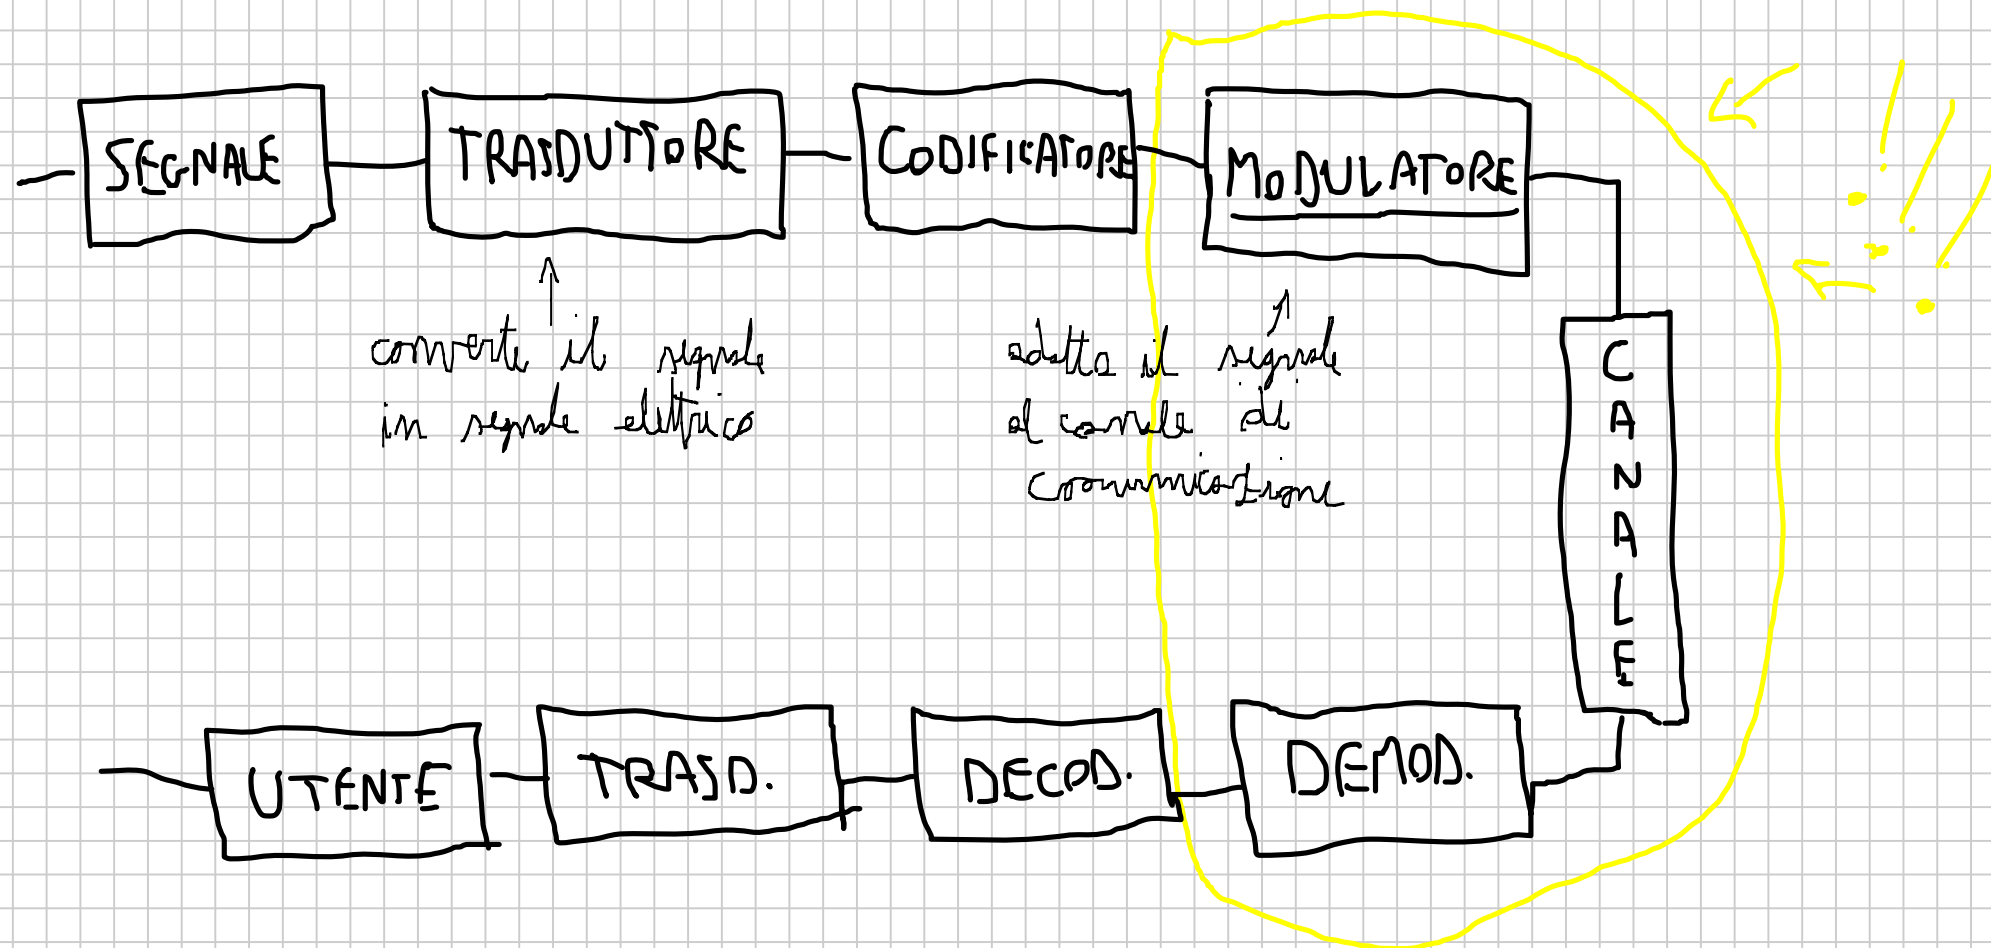 SEGNALE
TRASDUTTORE
CODIFICATORE
MODULATORE
converte il segnale
in segnale elettrico
adatta il segnale
al canale di
comunicazione
CANALE
UTENTE
TRASD.
DECOD.
DEMOD.
!!!